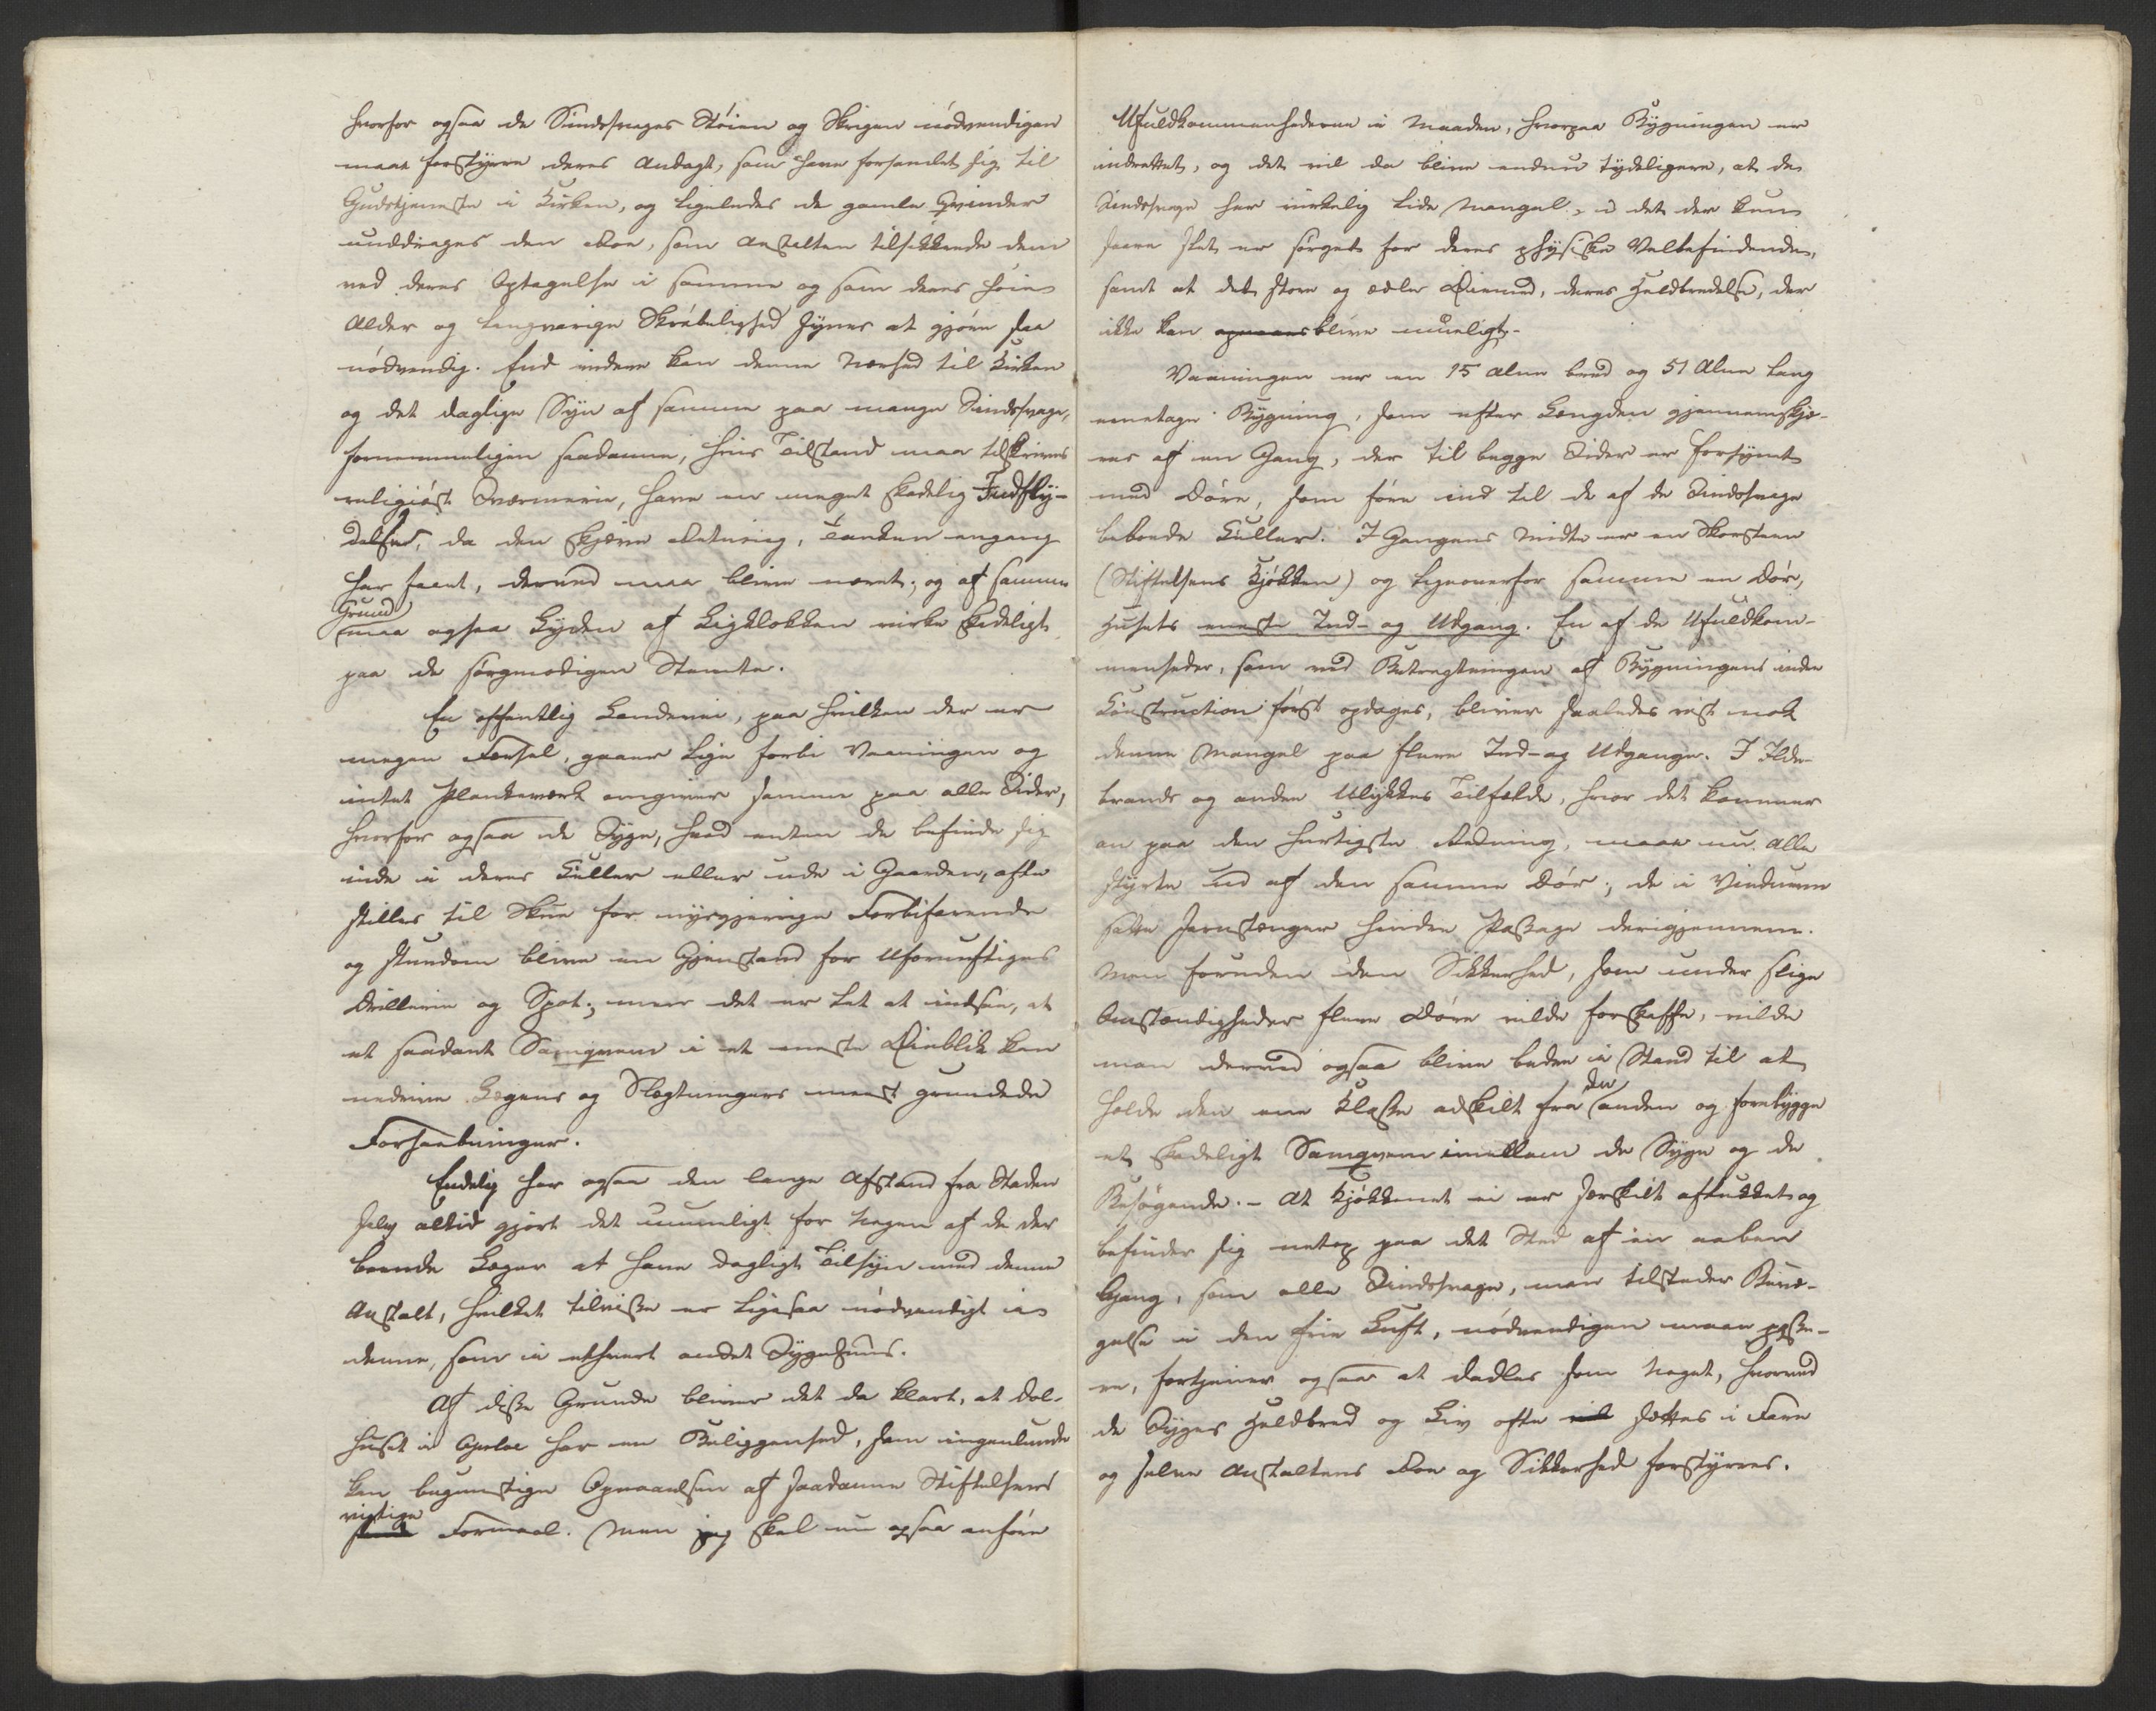 hvorfor ogsaa de Sindssvages Støien og Skrigen nødvendigen
maae forstyrre deres Andagt, som have forsamlet sig til
Gudstjeneste i Kirken, og ligeledes de gamle Qvinder
unddrages den Roe, som Anstalten tilsikkrede dem
ved deres Optagelse i samme og som deres høie
Alder og langvarige Skrøbelighed synes at gjøre saa
nødvendig. End videre kan denne Nærhed til Kirken
og det daglige Syn af samme paa mange Sindssvage,
fornemmeligen saadanne, hvis Tilstand maa tilskrives
religiøst Sværmerie, have en meget skadelig Indfly-
delse, da den skjæve Retning, Tanken engang
har faaet, derved maa blive næret; og af samme
Grund
maa ogsaa Lyden af Ligklokken virke skadeligt
paa de sørgmodigen Stemte.
En offentlig Landevei, paa hvilken der er
megen Færsel, gaaer lige forbi Vaaningen og
intet Plankeværk omgiver samme paa alle Sider,
hvorfor ogsaa de Syge, hvad enten de befinde sig
inde i deres Kuller eller ude i Gaarden, ofte
stilles til Skue for nysgjerrige Forbifarende
og stundom blive en Gjenstand for Ufornuftiges
Drillerie og Spot; men det er let at indsee, at
et saadant Samqvem i et eneste Øieblik kan
nedrive Lægens og Slægtningers meest grundede
Forhaabninger.
Endelig har ogsaa den lange Afstand fra Staden
selv altid gjort det umueligt for Nogen af de der
boende Læger at have dagligt Tilsyn med denne
Anstalt, hvilket tilvisse er ligesaa nødvendigt i
denne, som i ethvert andet Sygehuus.
Af disse Grunde bliver det da klart, at Dol-
huset i Opsloe har en Beliggenhed, som ingenlunde
kan begunstige Opnaaelsen af saadanne Stiftelsers
vigtige
Formaal. Men jeg skal nu ogsaa anføre
Ufuldkommenhederne i Maaden, hvorpaa Bygningen er
indrettet, og det vil da blive endnu tydeligere, at de
Sindssvage her virkelig lide Mangel, i det der kun
saare slet er sørget for deres physiske Velbefindende,
samt at det store og ædle Øiemed, deres Helbredelse, der
ikke kan opnaaes blive mueligt.-
Vaaningen er en 15 Alne bred og 51 Alne lang
eenetages Bygning, som efter Længden gjennemskjæ-
res af en Gang, der til begge Sider er forsynet
med Døre, som føre ind til de af de Sindssvage
beboede Kuller. I Gangens Midte er en Skorsteen
(Stiftelsens Kjøkken) og ligeoverfor samme en Dør,
Husets eneste Ind- og Udgang. En af de Ufuldkom-
menheder, som ved Betragtningen af Bygningens indre
Construction først opdages, bliver saaledes vist nok
denne Mangel paa flere Ind- og Udgange. I Ilde-
brands og andre Ulykkes Tilfælde, hvor det kommer
an paa den hurtigste Redning, maae nu Alle
styrte ud af den samme Dør; de i Vinduerne
satte Jernstænger hindre Passage derigjennem.
Men foruden den Sikkerhed, som under slige
Omstændigheder flere Døre vilde forskaffe, vilde
man derved ogsaa blive bedre i Stand til at
holde den ene Klasse adskilt fra den anden og forebygge
et skadeligt Samqvem imellem de Syge og de
Besøgende. - At Kjøkkenet ei er særskilt aflukket og
befinder sig netop paa det Sted af en aaben
Gang, som alle Sindssvage, man tilsteder Bevæ-
gelse i den frie Luft, nødvendigen maae passe-
re, fortjener ogsaa at dadles som Noget, hvorved
de Syges Helbred og Liv ofte vil sættes i Fare
og selve Anstaltens Roe og Sikkerhed forstyrres.